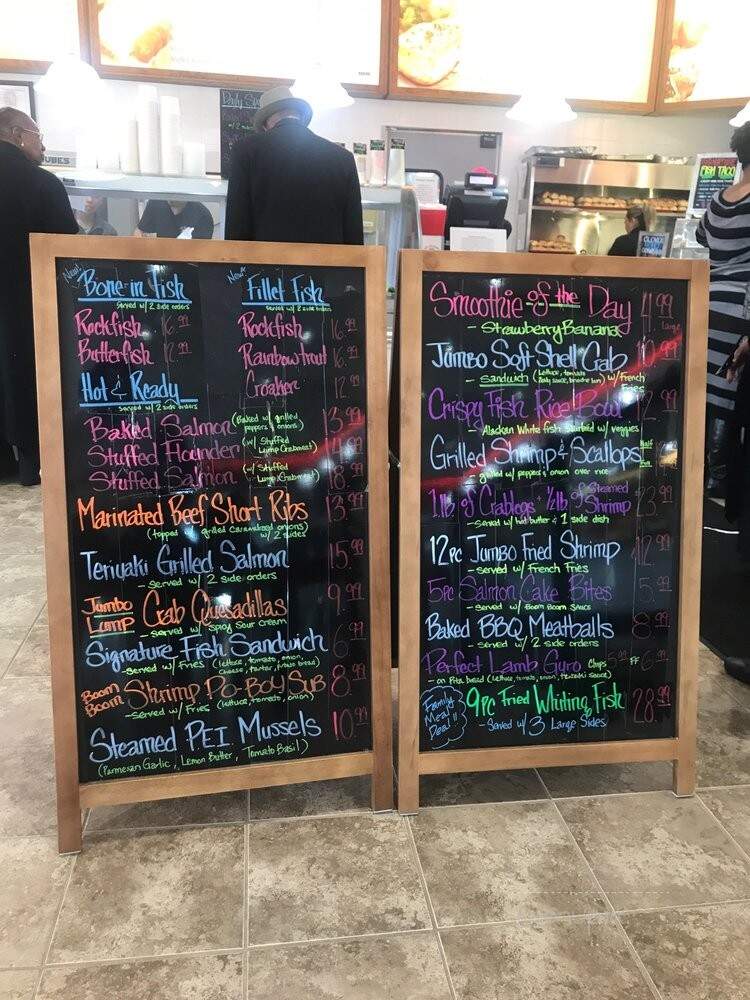 Daily
CUBES
FISH TACO
New!
Bone-in Fish
Served w/ 2 side orders
Rockfish 16.99
Butterfish 12.99
New
Fillet Fish
Served w/ 2 side orders
Rockfish .99
Rainbow trout 16.99
Croaker 12.99
Hot & Ready
Served w/ 2 side orders
Baked Salmon (Baked w/ grilled peppers & onions) 13.99
Stuffed Flounder (w/ Stuffed Lump Crabmeat) .99
Stuffed Salmon (w/ Stuffed Lump Crabmeat) 18.99
Marinated Beef Short Ribs 13.99
(topped w/ grilled caramelized onions)
w/ 2 sides
Teriyaki Grilled Salmon 15.99
- Served w/ 2 side orders
Jumbo Lump Crab Quesadillas 9.99
- Served w/ Spicy Sour cream
Signature Fish Sandwich 6.99
- Served w/ Fries (lettuce, tomato, onion, cheese, tarter, potato bread)
Boom Boom Shrimp Po-Boy Sub 8.99
- Served w/ Fries (lettuce, tomato, onion)
Steamed P.E.I. Mussels 10.99
(Parmesan Garlic, Lemon Butter, Tomato Basil)
Smoothie of the Day 4.99
- Strawberry Banana Large
Jumbo Soft Shell Crab 10.99
- Sandwich (lettuce, tomato, zesty sauce, brioche bun) w/ French Fries
Crispy Fish Rice Bowl 12.99
- Alaskan White fish sauteed w/ veggies
Grilled Shrimp & Scallops Half
- grilled w/ peppers & onion over rice Full
1 lb of Crablegs & 1/2 lb of Steamed Shrimp 23.99
- Served w/ hot butter & 1 side dish
12pc Jumbo Fried Shrimp 12.99
- served w/ French Fries
5pc Salmon Cake Bites 5.99
- served w/ Boom Boom Sauce
Baked BBQ Meatballs 8.99
- served w/ 2 side orders
Perfect Lamb Gyro Chips 5.99 FF 6.99
- on Pita bread (lettuce, tomato, onion, tzatziki sauce)
Family Meal Deal!!
9pc Fried Whiting Fish 28.99
- Served w/ 3 Large Sides